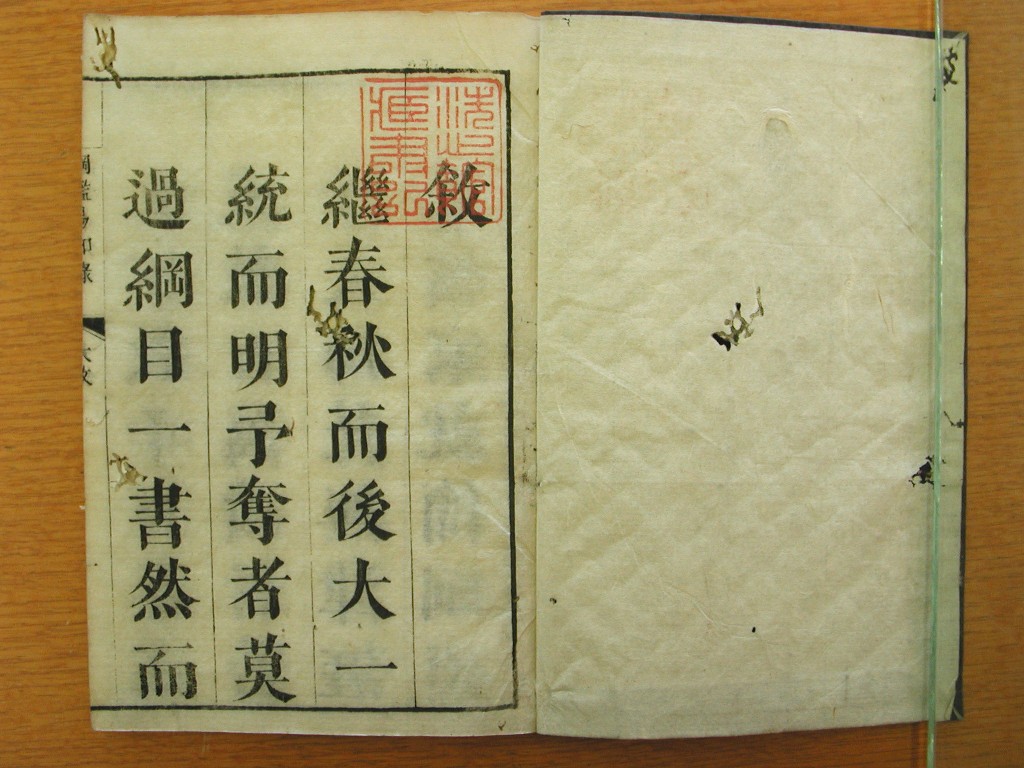 敘
繼春秋而後大一
統而明予奪者莫
過綱目一書然而
綱鑑易知錄